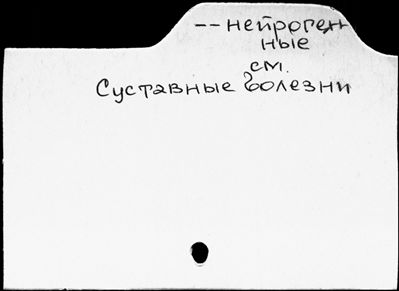 -- нейроген
ные
см.
Суставные болезни